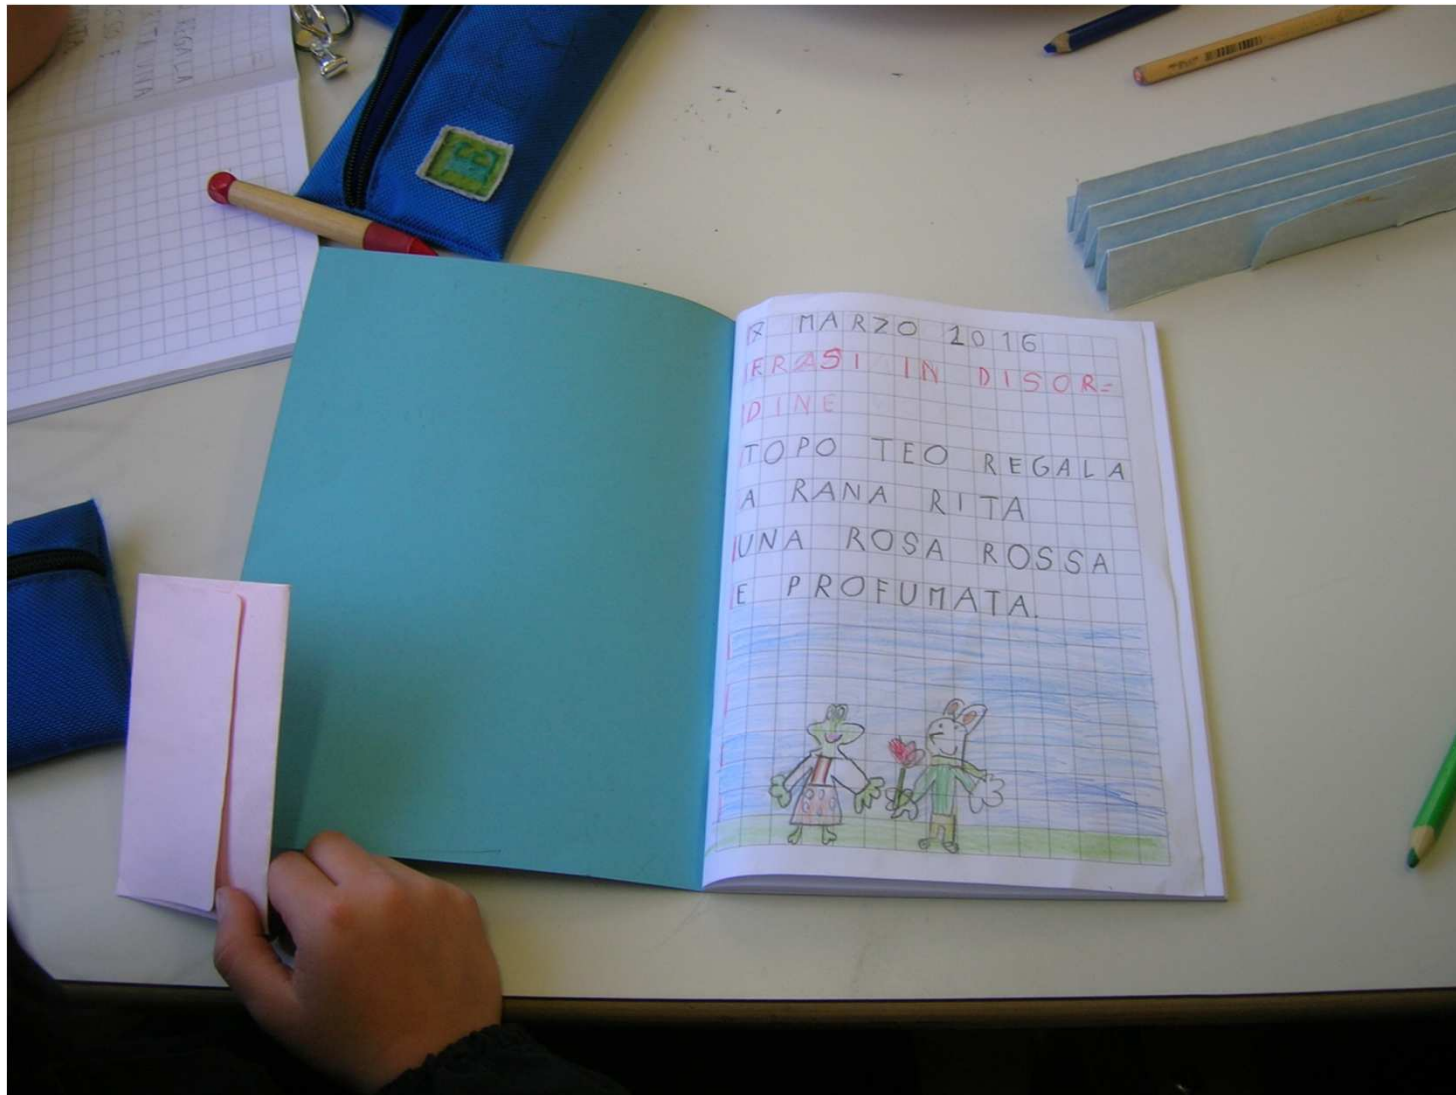 MARZO 2016
FRASI IN DISOR=
DINE
TOPO TEO REGALA
A RANA RITA
UNA ROSA ROSSA
E PROFUMATA.
REGALA